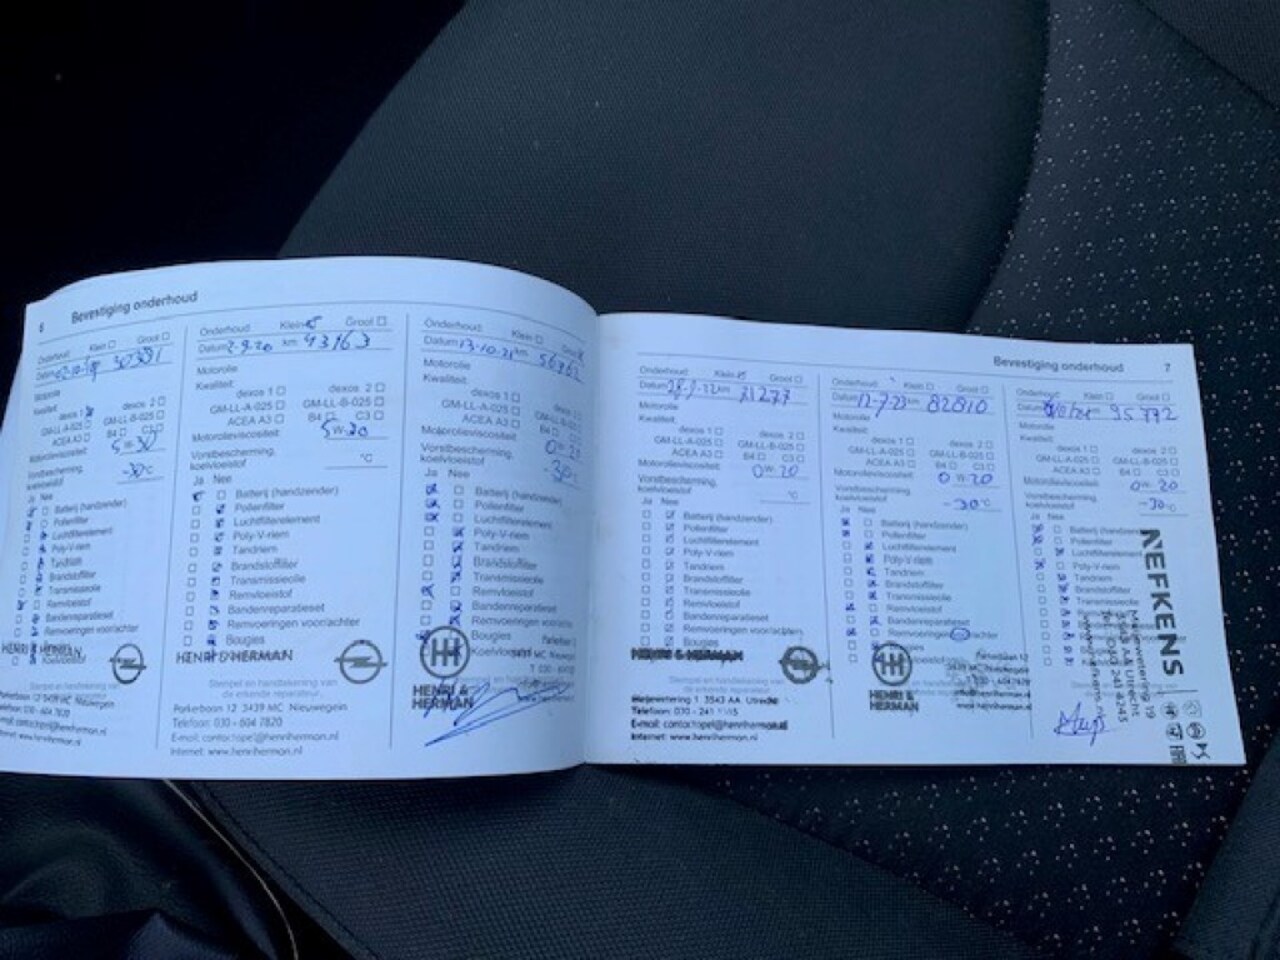 6 Bevestiging onderhoud
Onderhoud: Klein Groot
Datum
Motorolie
Kwaliteit:
dexos 1 dexos 2
GM-LL-A-025 GM-LL-B-025
ACEA A3 B4 C3
Motorolieviscositeit: 5W-30
Vorstbescherming koelvloeistof -30°C
Ja Nee
Batterij (handzender)
Pollenfilter
Luchtfilterelement
Poly-V-riem
Tandriem
Brandstoffilter
Transmissieolie
Remvloeistof
Bandenreparatieset
Remvoeringen voor/achter
Bougies
Koelvloeistof
HENRI & HERMAN
Stempel en handtekening van
de erkende reparateur.
Parkerboon 12 3439 MC Nieuwegein
Telefoon: 030 - 604 7820
E-mail: contactopel@henriherman.nl
Internet: www.henriherman.nl
Onderhoud: Klein Groot
Datum 2-9-20 km 43163
Motorolie
Kwaliteit:
dexos 1 dexos 2
GM-LL-A-025 GM-LL-B-025
ACEA A3 B4 C3
Motorolieviscositeit: 5W-30
Vorstbescherming
koelvloeistof °C
Ja Nee
Batterij (handzender)
Pollenfilter
Luchtfilterelement
Poly-V-riem
Tandriem
Brandstoffilter
Transmissieolie
Remvloeistof
Bandenreparatieset
Remvoeringen voor/achter
Bougies
HENRI & HERMAN
Stempel en handtekening van
de erkende reparateur.
Parkerboon 12 3439 MC Nieuwegein
Telefoon: 030 - 604 7820
E-mail: contactopel@henriherman.nl
Internet: www.henriherman.nl
Onderhoud: Klein Groot
Datum 13-10-21 km
Motorolie
Kwaliteit:
dexos 1 dexos 2
GM-LL-A-025 GM-LL-B-025
ACEA A3 B4 C3
Motorolieviscositeit: 0W-20
Vorstbescherming
koelvloeistof -30°C
Ja Nee
Batterij (handzender)
Pollenfilter
Luchtfilterelement
Poly-V-riem
Tandriem
Brandstoffilter
Transmissieolie
Remvloeistof
Bandenreparatieset
Remvoeringen voor/achter
Bougies
Koelvloeistof
HENRI &
HERMAN
Bevestiging onderhoud 7
Onderhoud: Klein Groot
Datum km 71277
Motorolie
Kwaliteit:
dexos 1 dexos 2
GM-LL-A-025 GM-LL-B-025
ACEA A3 B4 C3
Motorolieviscositeit: 0W-20
Vorstbescherming
koelvloeistof °C
Ja Nee
Batterij (handzender)
Pollenfilter
Luchtfilterelement
Poly-V-riem
Tandriem
Brandstoffilter
Transmissieolie
Remvloeistof
Bandenreparatieset
Remvoeringen voor/achter
Bougies
HENRI & HERMAN
Stempel en handtekening van
de erkende reparateur.
1 3543 AA Utrecht
E-mail: contactopel@henriherman.nl
Internet: www.henriherman.nl
Onderhoud: Klein Groot
Datum 12-7-23 km 82810
Motorolie
Kwaliteit:
dexos 1 dexos 2
GM-LL-A-025 GM-LL-B-025
ACEA A3 B4 C3
Motorolieviscositeit: 0W-20
Vorstbescherming
koelvloeistof -30°C
Ja Nee
Batterij (handzender)
Pollenfilter
Luchtfilterelement
Poly-V-riem
Tandriem
Brandstoffilter
Transmissieolie
Remvloeistof
Bandenreparatieset
Remvoeringen voor/achter
HENRI &
HERMAN
Onderhoud: Klein Groot
Datum km 95772
Motorolie
Kwaliteit:
dexos 1 dexos 2
GM-LL-A-025 GM-LL-B-025
ACEA A3 B4 C3
Motorolieviscositeit: 0W-20
Vorstbescherming
koelvloeistof -30°C
Ja Nee
Batterij (handzender)
Pollenfilter
Luchtfilterelement
Poly-V-riem
Tandriem
Brandstoffilter
Transmissieolie
NEFKENS
Meijewetering 19
3543 AA Utrecht